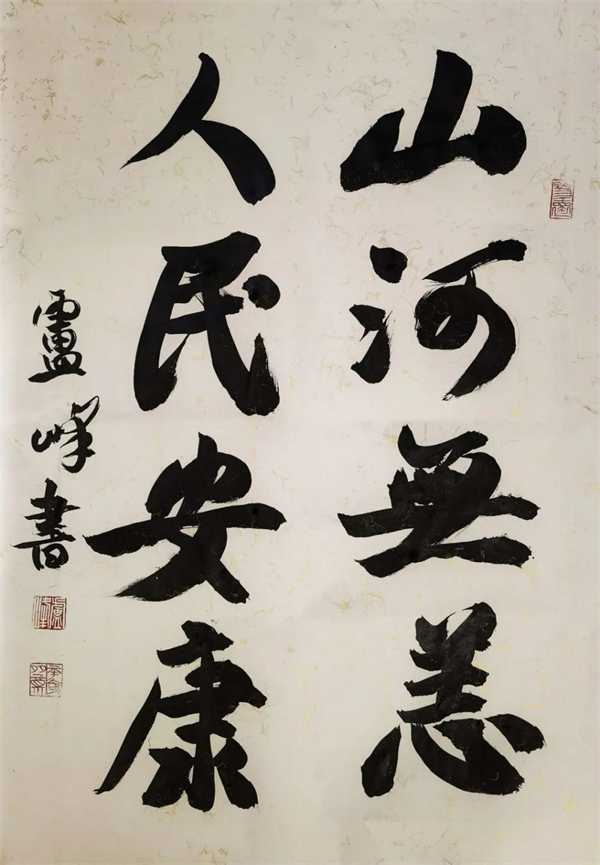 山河無恙
人民安康
盧峰書